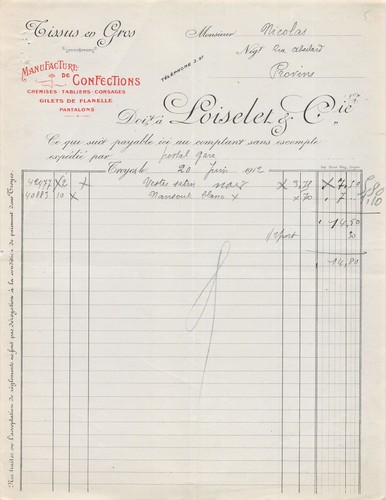 Tissus en Gros
Monsieur Nicolas
Négt
Provins
TÉLÉPHONE 3.91
MANUFACTURE
DE
CONFECTIONS
CHEMISES-TABLIERS-CORSAGES
GILETS DE FLANELLE
PANTALONS
Doit à LOISELET & Cie
Ce que suit payable ici au comptant sans escompte
expédié par postal gare
Troyes, le 20 Juin 1912
42077 2 x Vestes satin noir x 3,75 7,50
40883 10 x Nansouk blanc x 70 7
14,50
port 30
14,80
Nos traites ou l'acceptation de règlements ne font pas dérogation à la condition de paiement dans Troyes.